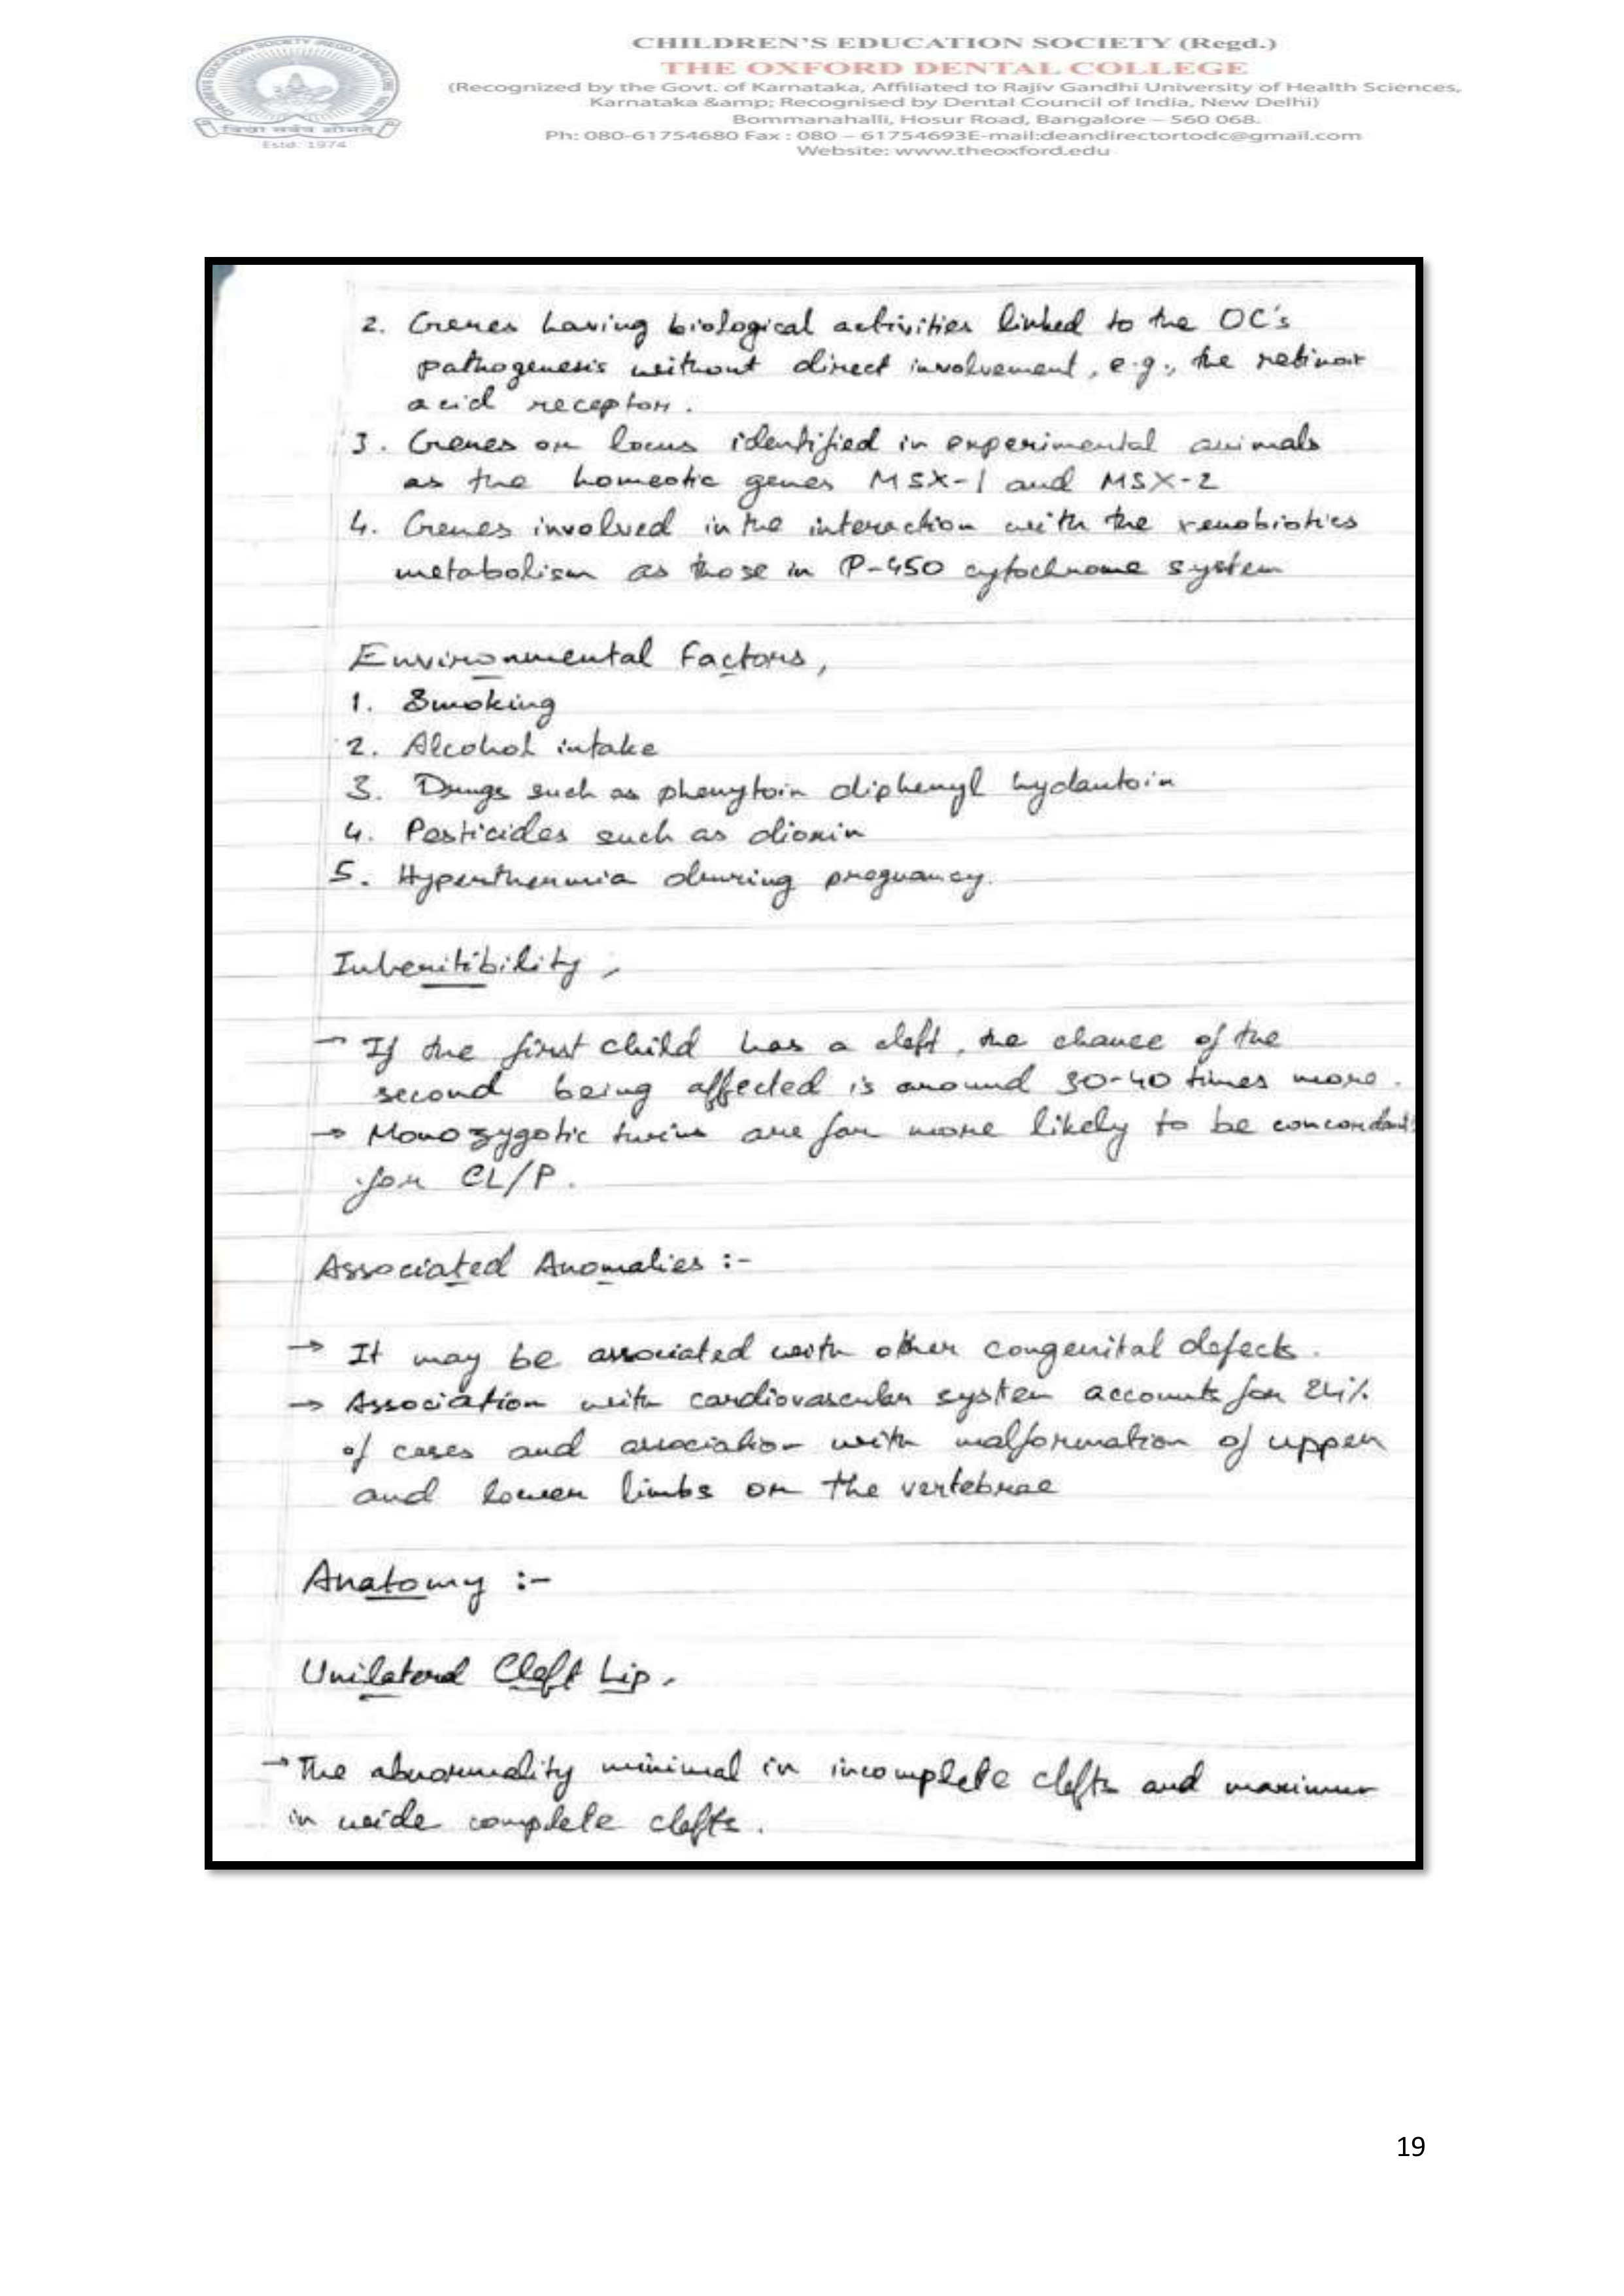 CHILDREN'S EDUCATION SOCIETY (Regd.)
THE OXFORD DENTAL COLLEGE
(Recognized by the Govt. of Karnataka, Affiliated to Rajiv Gandhi University of Health Sciences,
Karnataka &amp; Recognised by Dental Council of India, New Delhi)
Bommanahalli, Hosur Road, Bangalore – 560 068.
Ph: 080-61754680 Fax : 080 – 61754693E-mail:deandirectortodc@gmail.com
Website: www.theoxford.edu
Estd. 1974
2. Genes having biological activities linked to the OC's
pathogenesis without direct involvement, e.g., the retinoic
acid receptor.
3. Genes or locus identified in experimental animals
as the homeotic genes MSX-1 and MSX-2
4. Genes involved in the interaction with the xenobiotics
metabolism as those in P-450 cytochrome system
Environmental Factors,
1. Smoking
2. Alcohol intake
3. Drugs such as phenytoin diphenyl hydantoin
4. Pesticides such as dioxin
5. Hyperthermia during pregnancy.
Inheritibility,
→ If the first child has a cleft, the chance of the
second being affected is around 30-40 times more.
→ Monozygotic twins are far more likely to be concordant
for CL/P.
Associated Anomalies :-
→ It may be associated with other congenital defects.
→ Association with cardiovascular system accounts for 24%
of cases and association with malformation of upper
and lower limbs or the vertebrae
Anatomy :-
Unilateral Cleft Lip.
→ The abnormality minimal in incomplete clefts and maximum
in wide complete clefts.
19